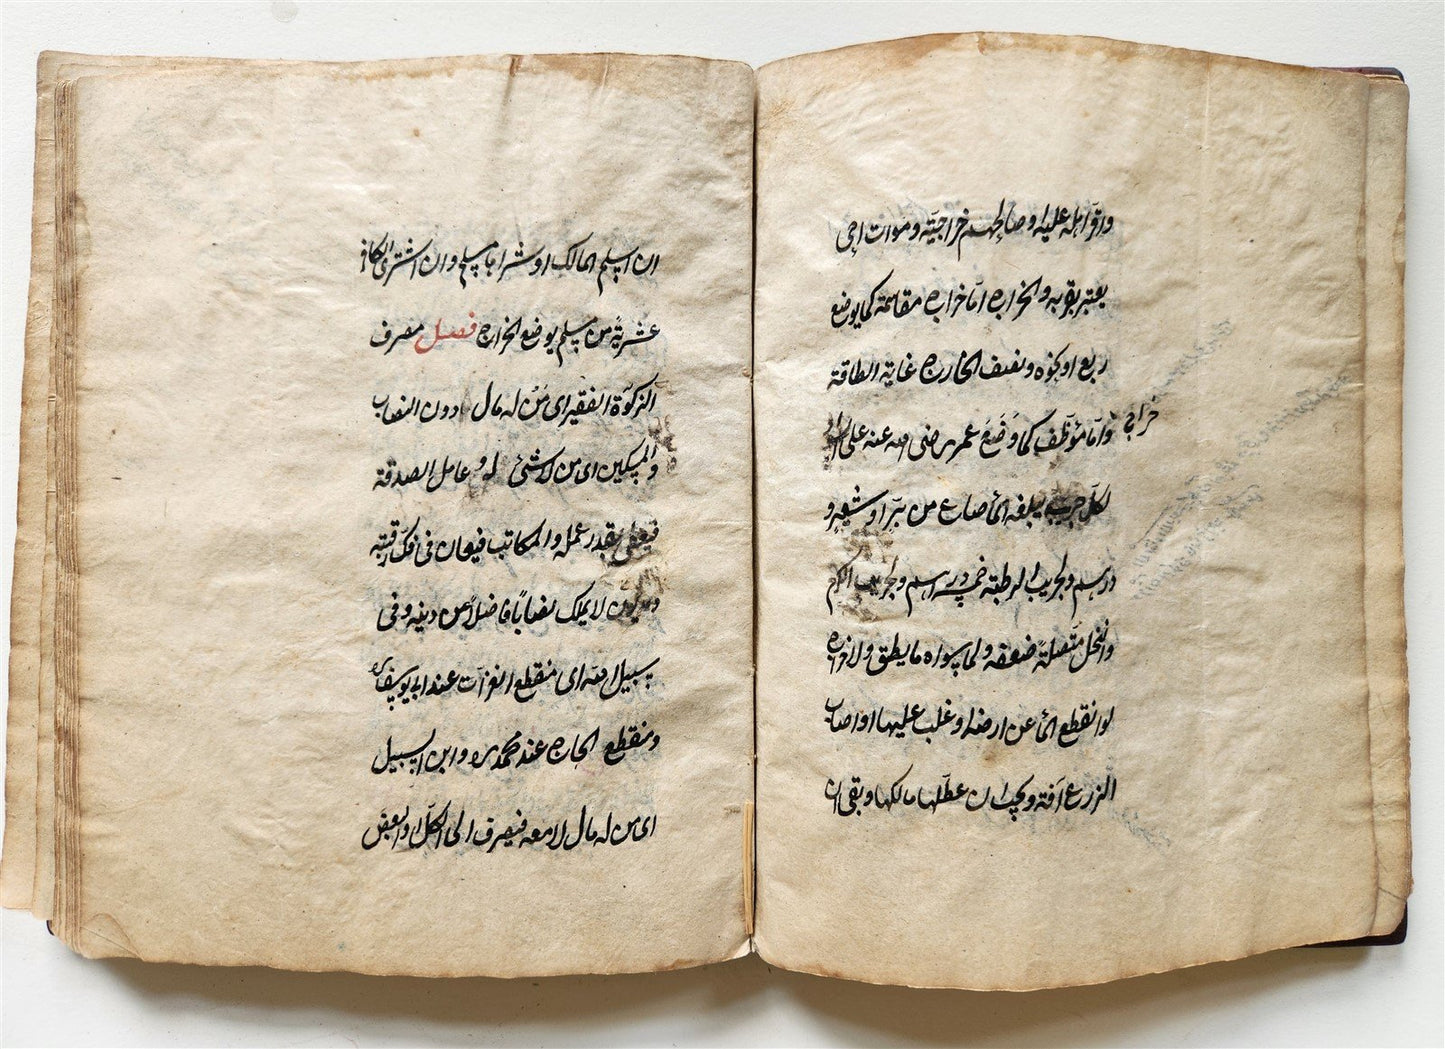 واقرّ اهله عليه او صالحهم خراجيّة وموات احى
يعتبر بقربه والخراج امّا خراج مقاسمة كما يوضع
ربع او نحوه ونصف الخارج غاية الطاقة
وامّا مؤظّف كما وَضَعَ عمر رضى الله عنه على
خراج
لكلّ جريب يبلغه الماء صاع من برّ او شعير و
درهم ولجريب الرطبة خمسة دراهم ولجريب الكرم
والنخل متّصلة ضعفه ولما سواه ما يطيق ولا خراج
لو انقطع الماء عن ارضه او غلب عليها او اصاب
الزرع آفة ويجب ان عطّلها مالكها ويبقى ان
ان اسلم المالك او شراها مسلم وان اشترى الكافر
عشريّة من مسلم يوضع الخراج فصل مصرف
الزكوٰة الفقير اى مَنْ له مال دون النصاب
والمسكين اى من لا شئ له وعامل الصدقة
فيعطى بقدر عمله والمكاتب فيعان فى فكّ رقبته
ومديون لا يملك نصاباً فاضلاً من دينه وفى
سبيل الله اى منقطع الغزات عند ابى يوسف
ومنقطع الحاج عند محمد رح وابن السبيل
اى من له مال لا معه فيصرف الى الكلّ او البعض